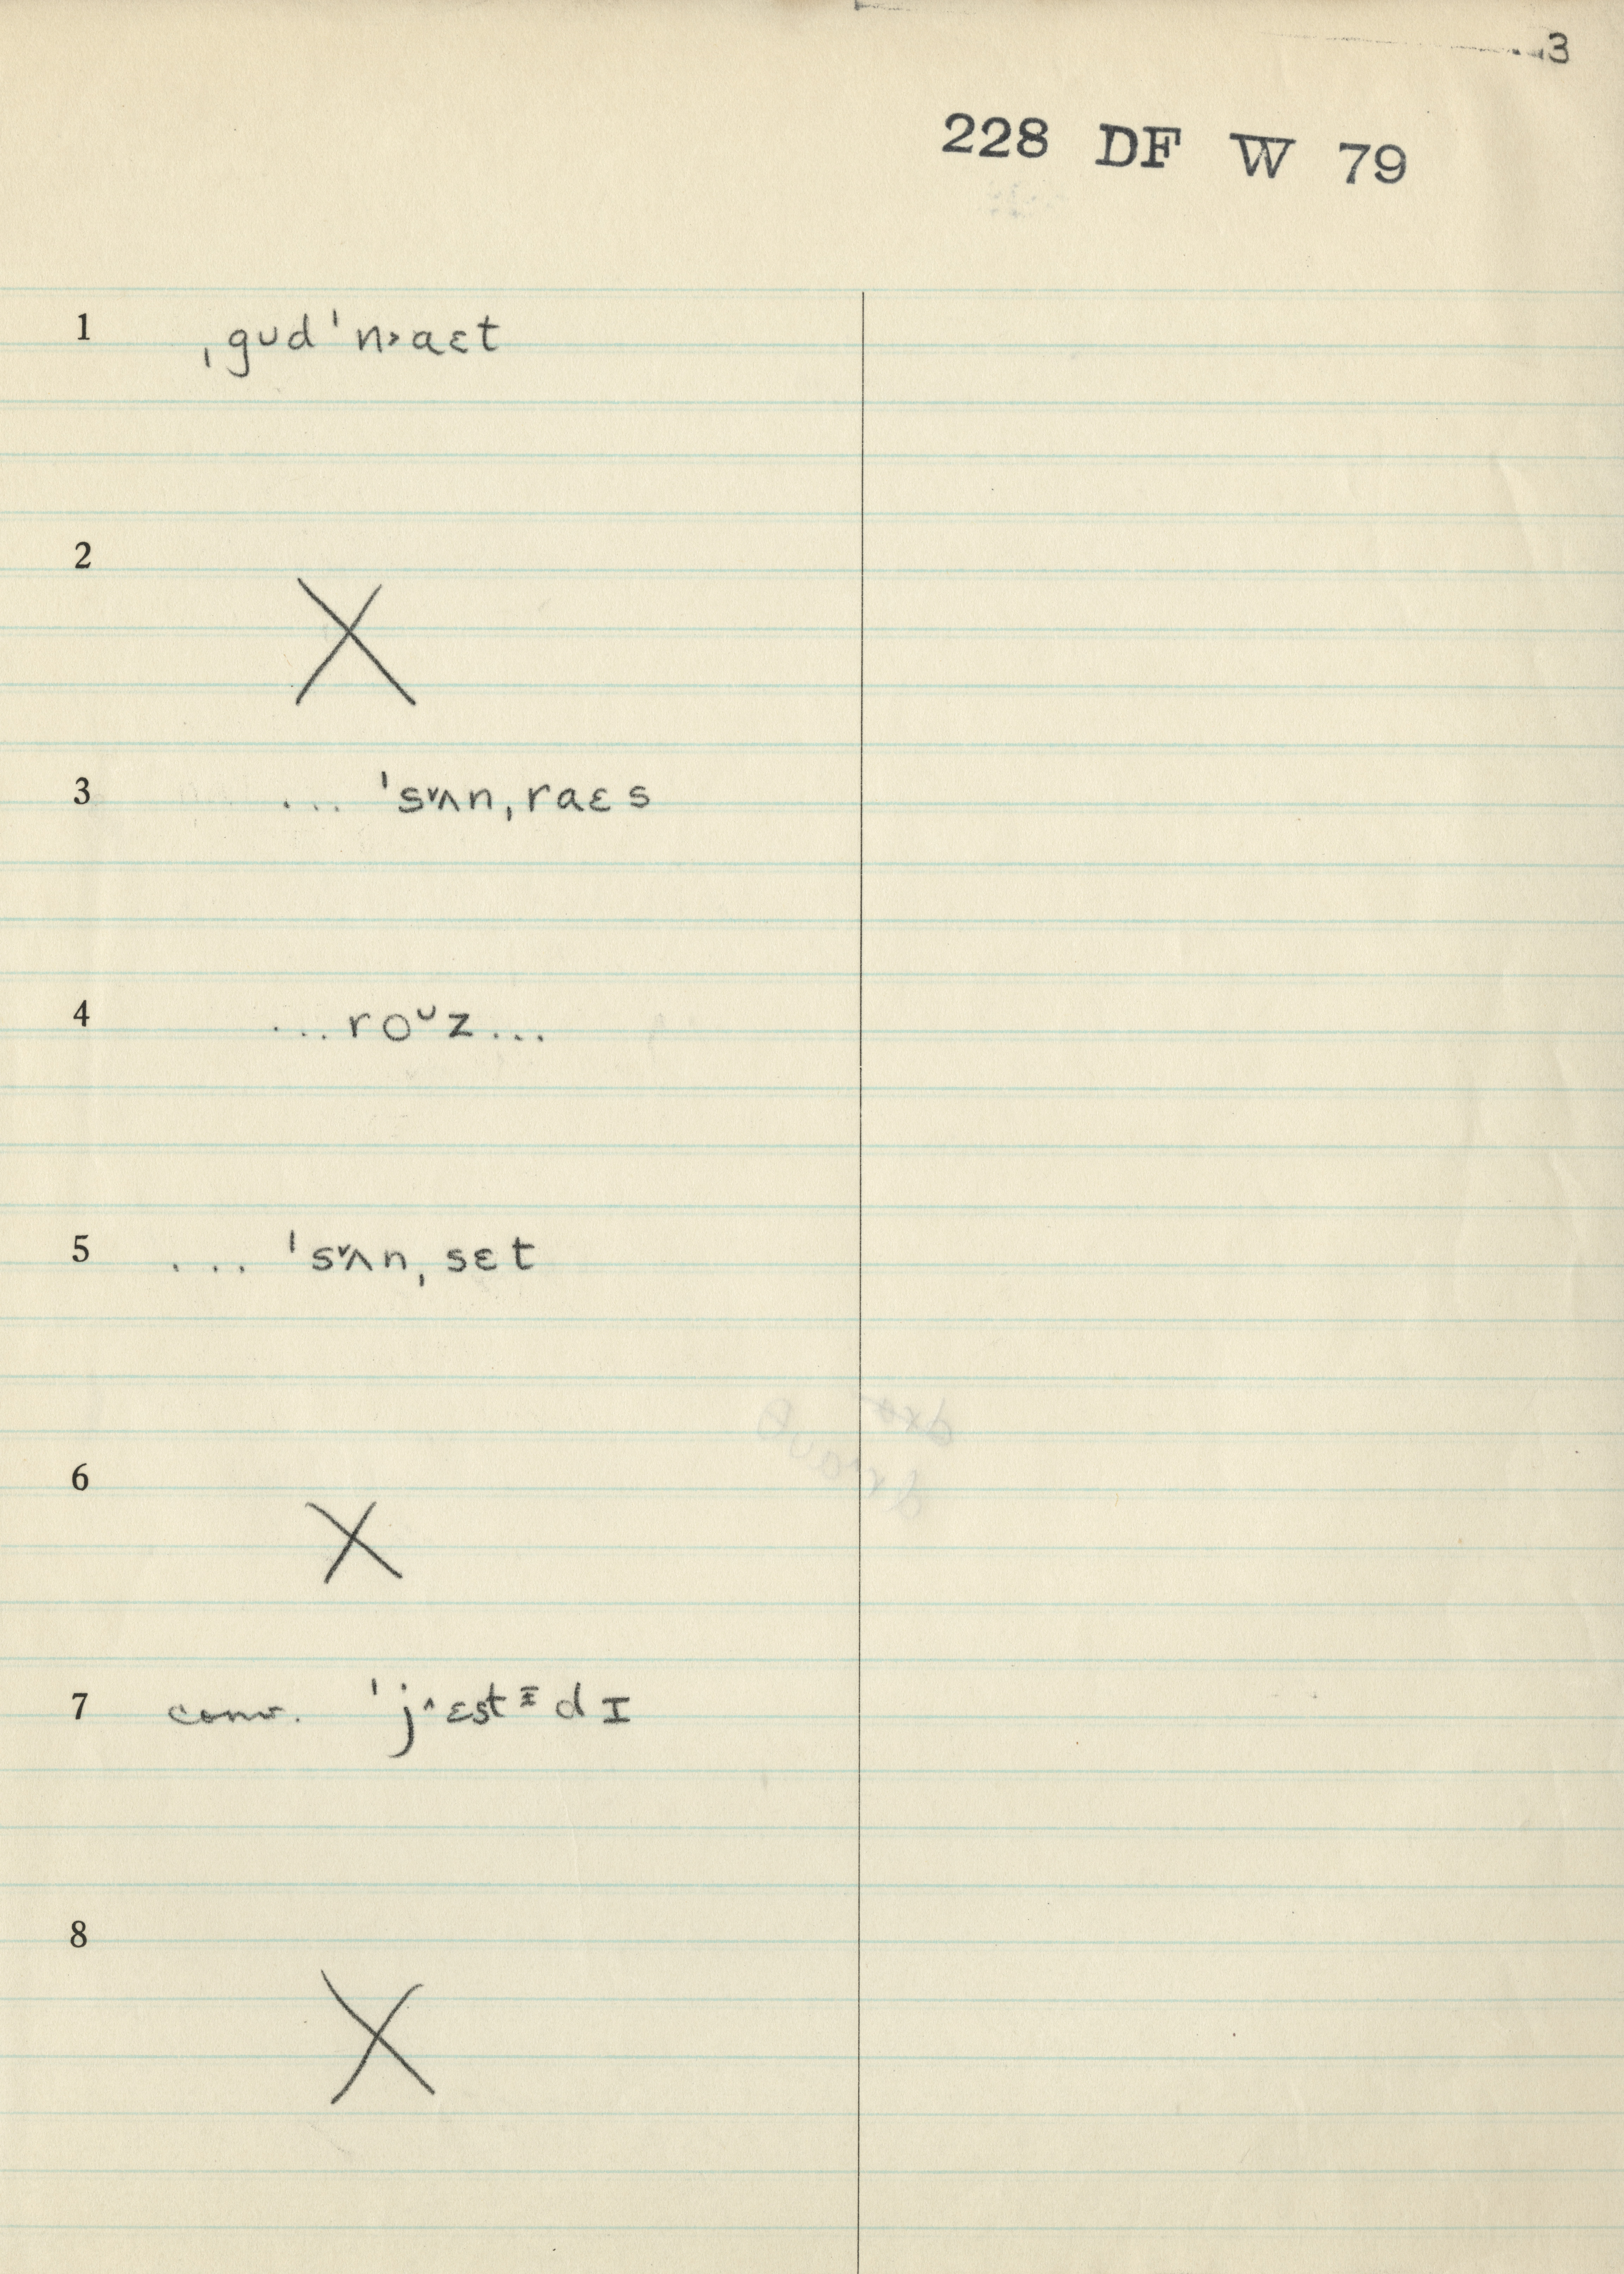 3
228 DF W 79
1 ˌgᴜd ˈn˃aɛt
2 X
3 ... ˈs˅ʌnˌraɛs
4 ...roᶸz...
5 ... ˈs˅ʌnˌsɛt
6 X
7 conv. ˈj˄ɛstᶦdɪ
8 X